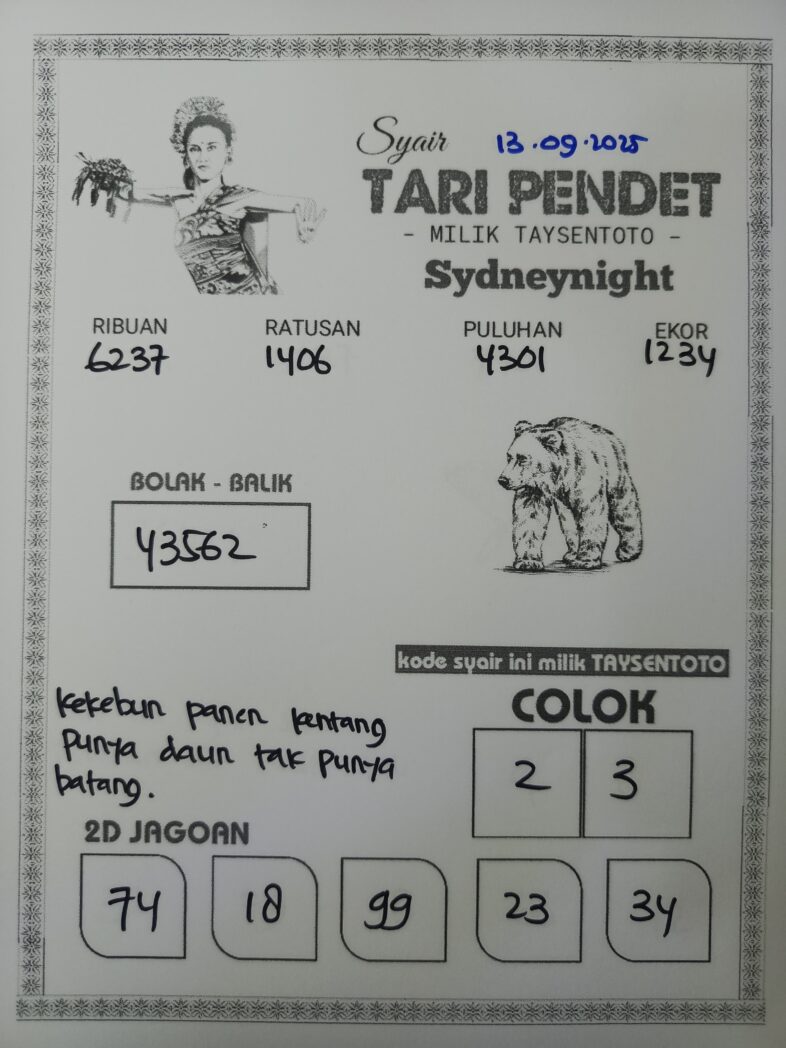 Syair 13.09.2025
TARI PENDET
- MILIK TAYSENTOTO -
Sydneynight
RIBUAN RATUSAN PULUHAN EKOR
6237 1406 4301 1234
BOLAK - BALIK
43562
kode syair ini milik TAYSENTOTO
kekebun panen kentang
punya daun tak punya
batang.
COLOK
2 3
2D JAGOAN
74 18 99 23 34